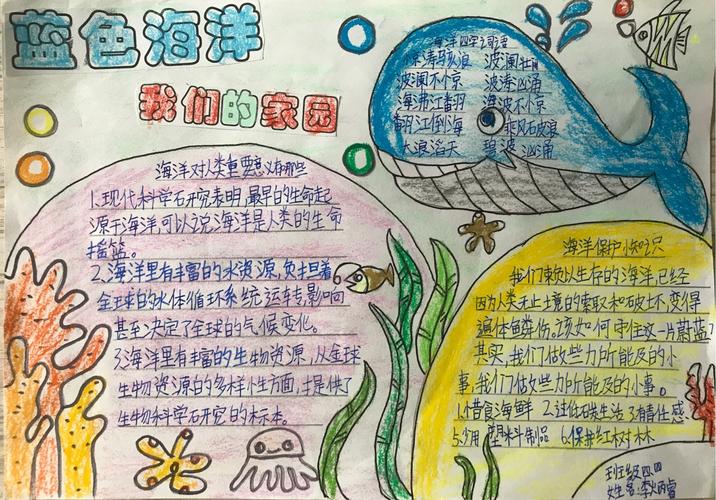 蓝色海洋
我们的家园
海洋四字词语
惊涛骇浪 波澜壮阔
波澜不惊 波涛汹涌
海沸江翻 海波不惊
翻江倒海 乘风破浪
大浪滔天 碧波汹涌
海洋对人类重要意义有哪些
1.现代科学研究表明,最早的生命起
源于海洋,可以说海洋是人类的生命
摇篮。
2.海洋里有丰富的水资源,负担着
全球的水体循环系统运转,影响
甚至决定了全球的气候变化。
3.海洋里有丰富的生物资源,从全球
生物资源的多样性方面,提供了
生物科学研究的标本。
海洋保护小知识
我们赖以生存的海洋,已经
因为人类无止境的索取和破坏,变得
遍体鳞伤。该如何守住这一片蔚蓝?
其实,我们做些力所能及的小
事,我们做些力所能及的小事。
1.惜食海鲜 2.过低碳生活 3.有责任感
5.少用塑料制品 6.保护红树林
班级:四.四
姓名:李